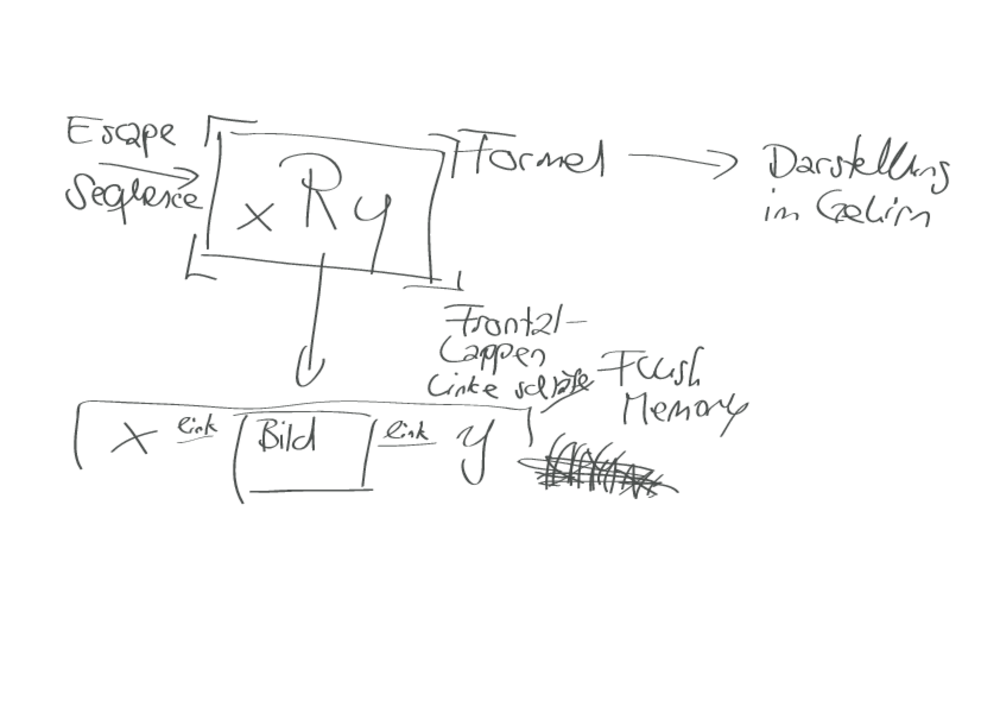 Escape
Sequence
x R y
Formel
Darstellung
in Gehirn
Frontal-
Lappen
linke
Flush
Memory
x link Bild link y